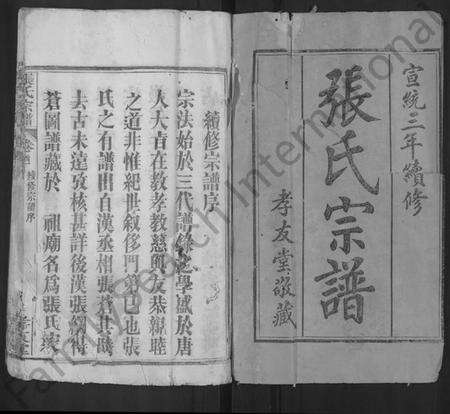 宣統三年續修
張氏宗譜
孝友堂敬藏
續修宗譜序
宗法始於三代譜錄之學盛於唐
人大旨在教孝教慈興友恭聯睦
之道非惟紀世叙侈門第已也張
氏之有譜聞自漢丞相張蒼其時
去古未遠攷核甚詳後漢張綱得
蒼圖譜藏於 祖廟名為張氏
張氏宗譜
卷首 續修宗譜序
FamilySearch International